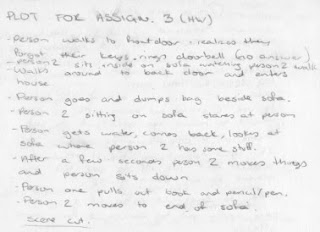 PLOT FOR ASSIGN. 3 (HW)
- Person walks to front door - realises they
forgot their keys, rings doorbell (no answer)
- person 2 sits inside on sofa watching person 2 walk
walks around to back door and enters
house
- Person goes and dumps bag beside sofa.
- Person 2 sitting on sofa stares at person
- Person gets water, comes back, looks at
sofa where person 2 has some stuff.
- After a few seconds person 2 moves things
and person sits down
- Person one pulls out book and pencil/pen.
- Person 2 moves to end of sofa.
Scene cut.